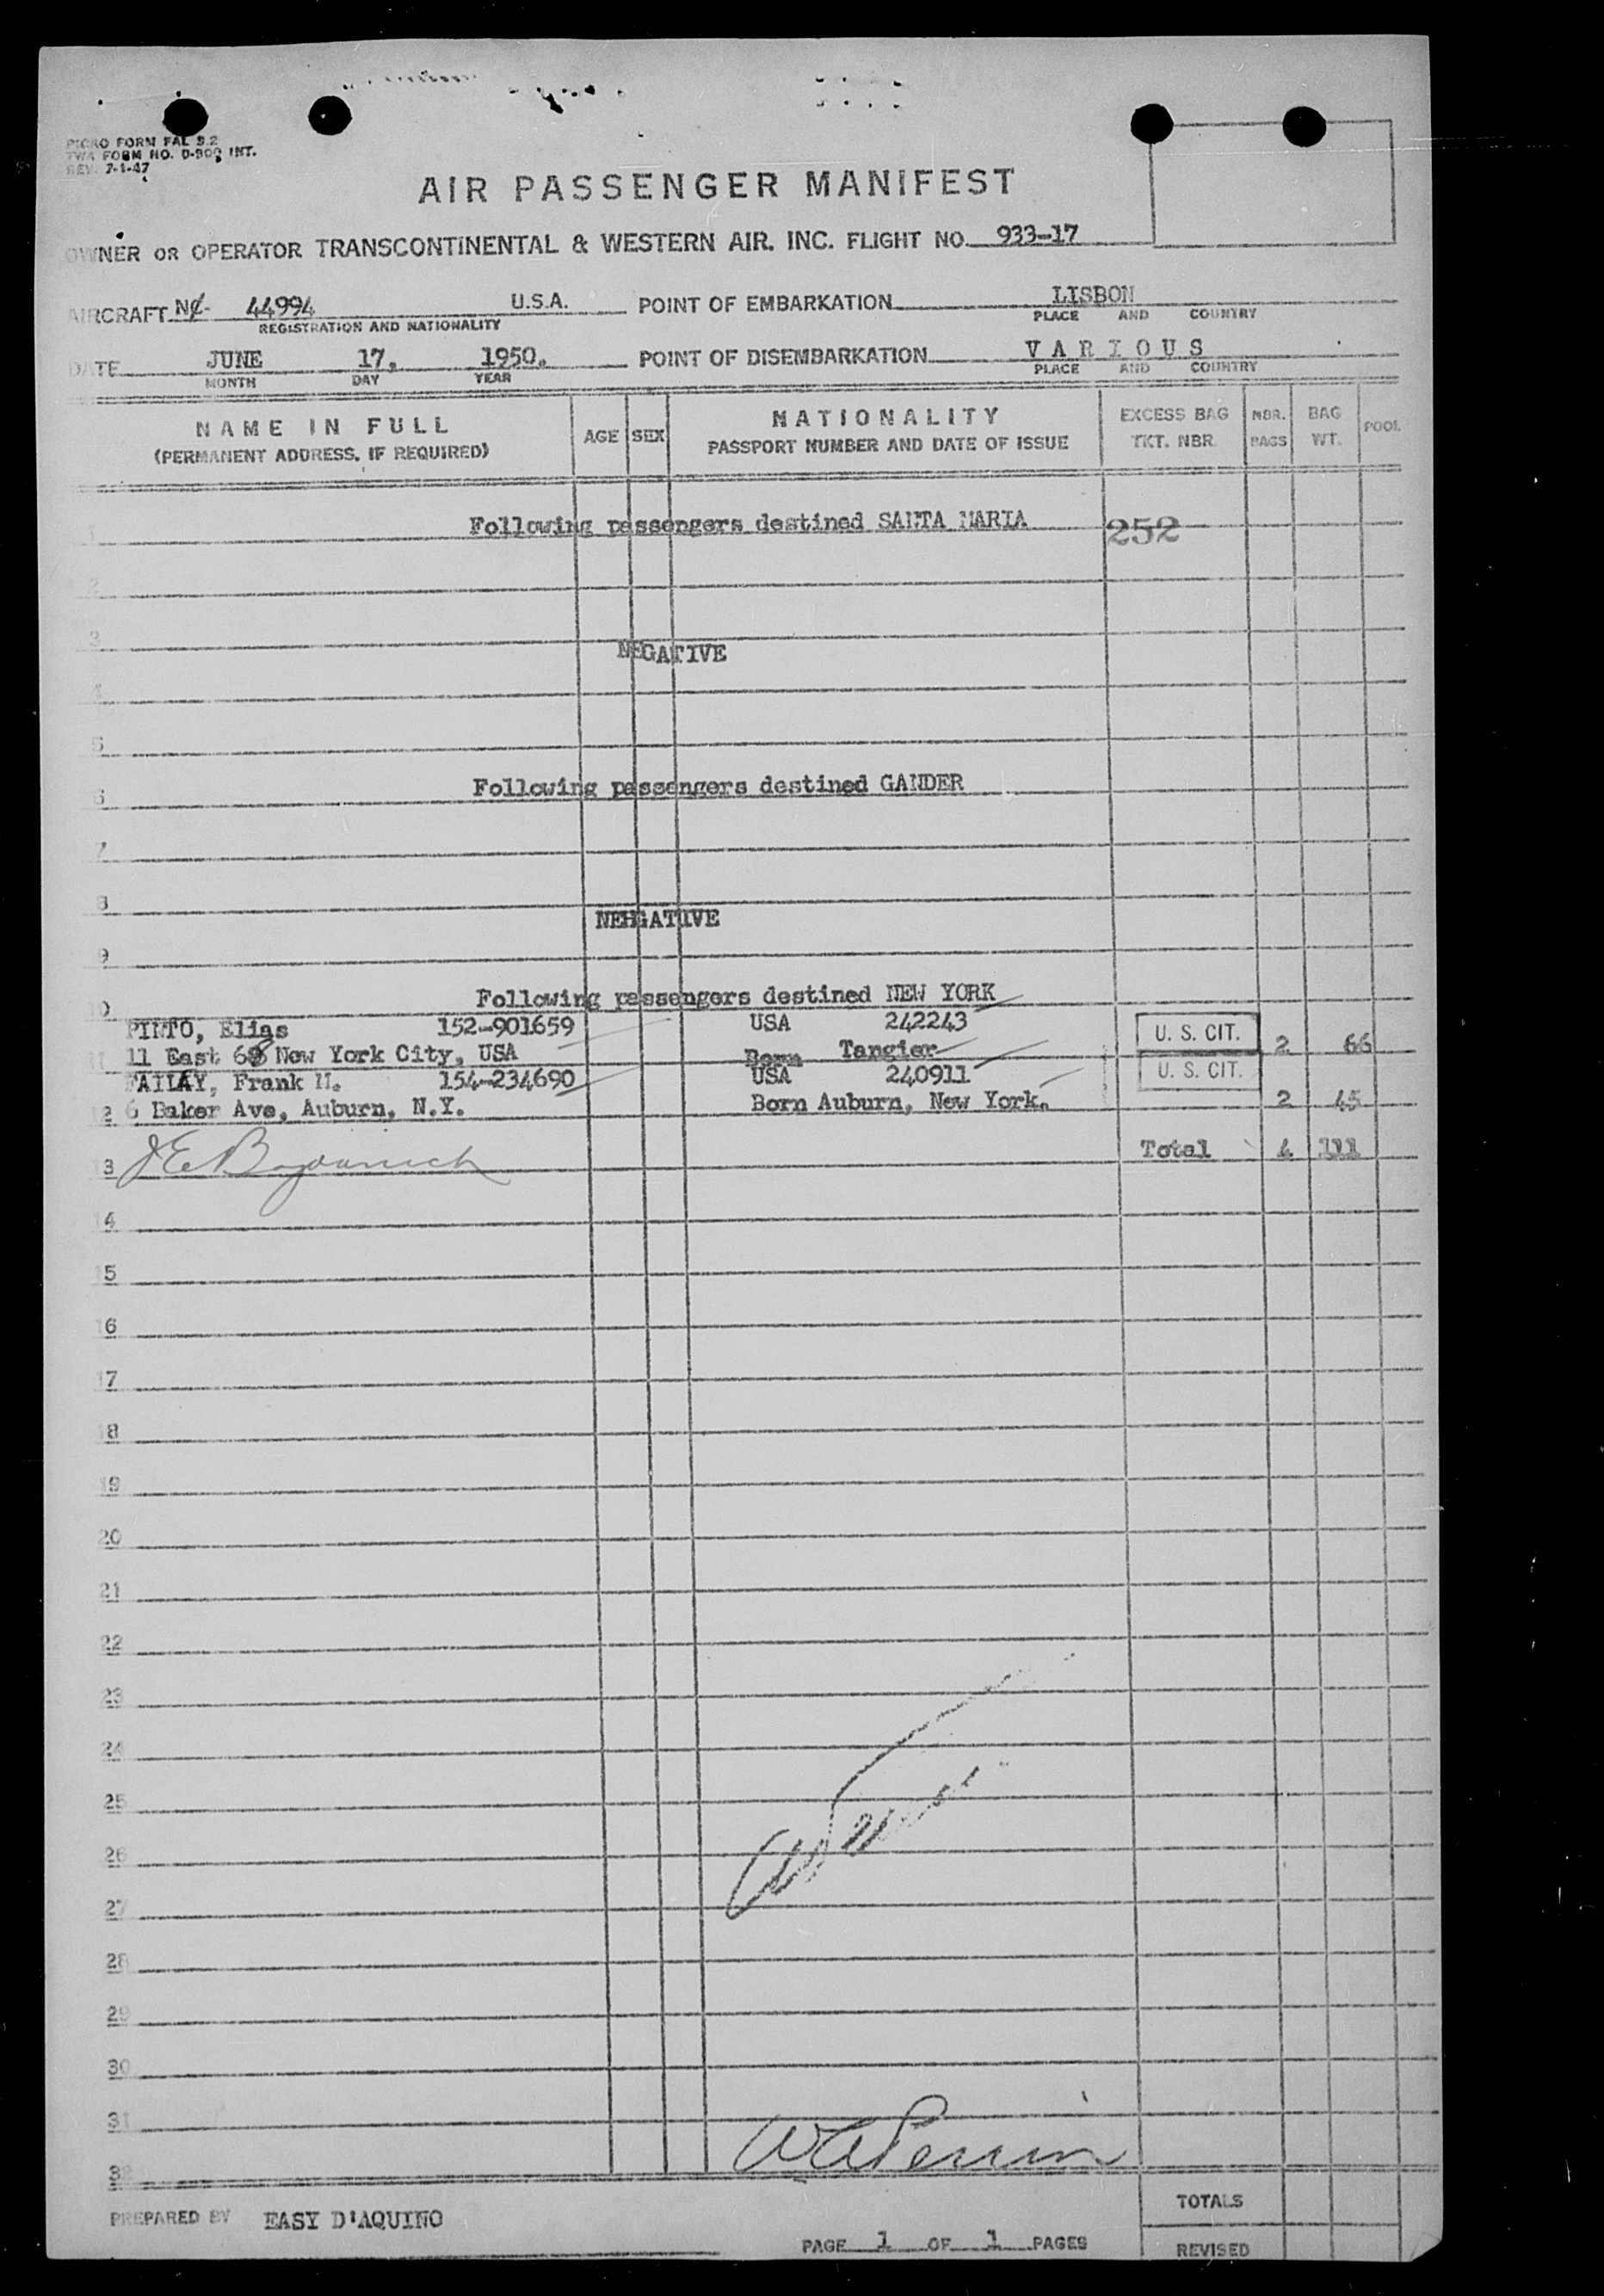 PICAO FORM FAL 9.2
TWA FORM NO. 0-900 INT.
REV. 7-1-47
AIR PASSENGER MANIFEST
OWNER OR OPERATOR TRANSCONTINENTAL & WESTERN AIR. INC. FLIGHT NO. 933-17
AIRCRAFT NC- 44994 U.S.A. POINT OF EMBARKATION LISBON
REGISTRATION AND NATIONALITY PLACE AND COUNTRY
DATE JUNE 17, 1950. POINT OF DISEMBARKATION VARIOUS
MONTH DAY YEAR PLACE AND COUNTRY
NAME IN FULL AGE SEX NATIONALITY EXCESS BAG NBR. BAG POOL
(PERMANENT ADDRESS, IF REQUIRED) PASSPORT NUMBER AND DATE OF ISSUE TKT. NBR. BAGS WT.
1 Following passengers destined SANTA MARIA 252
2
3
NEGATIVE
4
5
6 Following passengers destined GANDER
7
8
NEHGATIVE
9
10 Following passengers destined NEW YORK
PINTO, Elias 152-901659 USA 242243 U. S. CIT.
11 11 East 68 New York City, USA Born Tangier 2 66
Frank 154-234690 USA 240911 U. S. CIT.
12 6 Baker Ave, Auburn, N.Y. Born Auburn, New York. 2 45
13 Total 4 111
14
15
16
17
18
19
20
21
22
23
24
25
26
27
28
29
30
31
32 WAPerrin
PREPARED BY EASY D'AQUINO TOTALS
PAGE 1 OF 1 PAGES REVISED